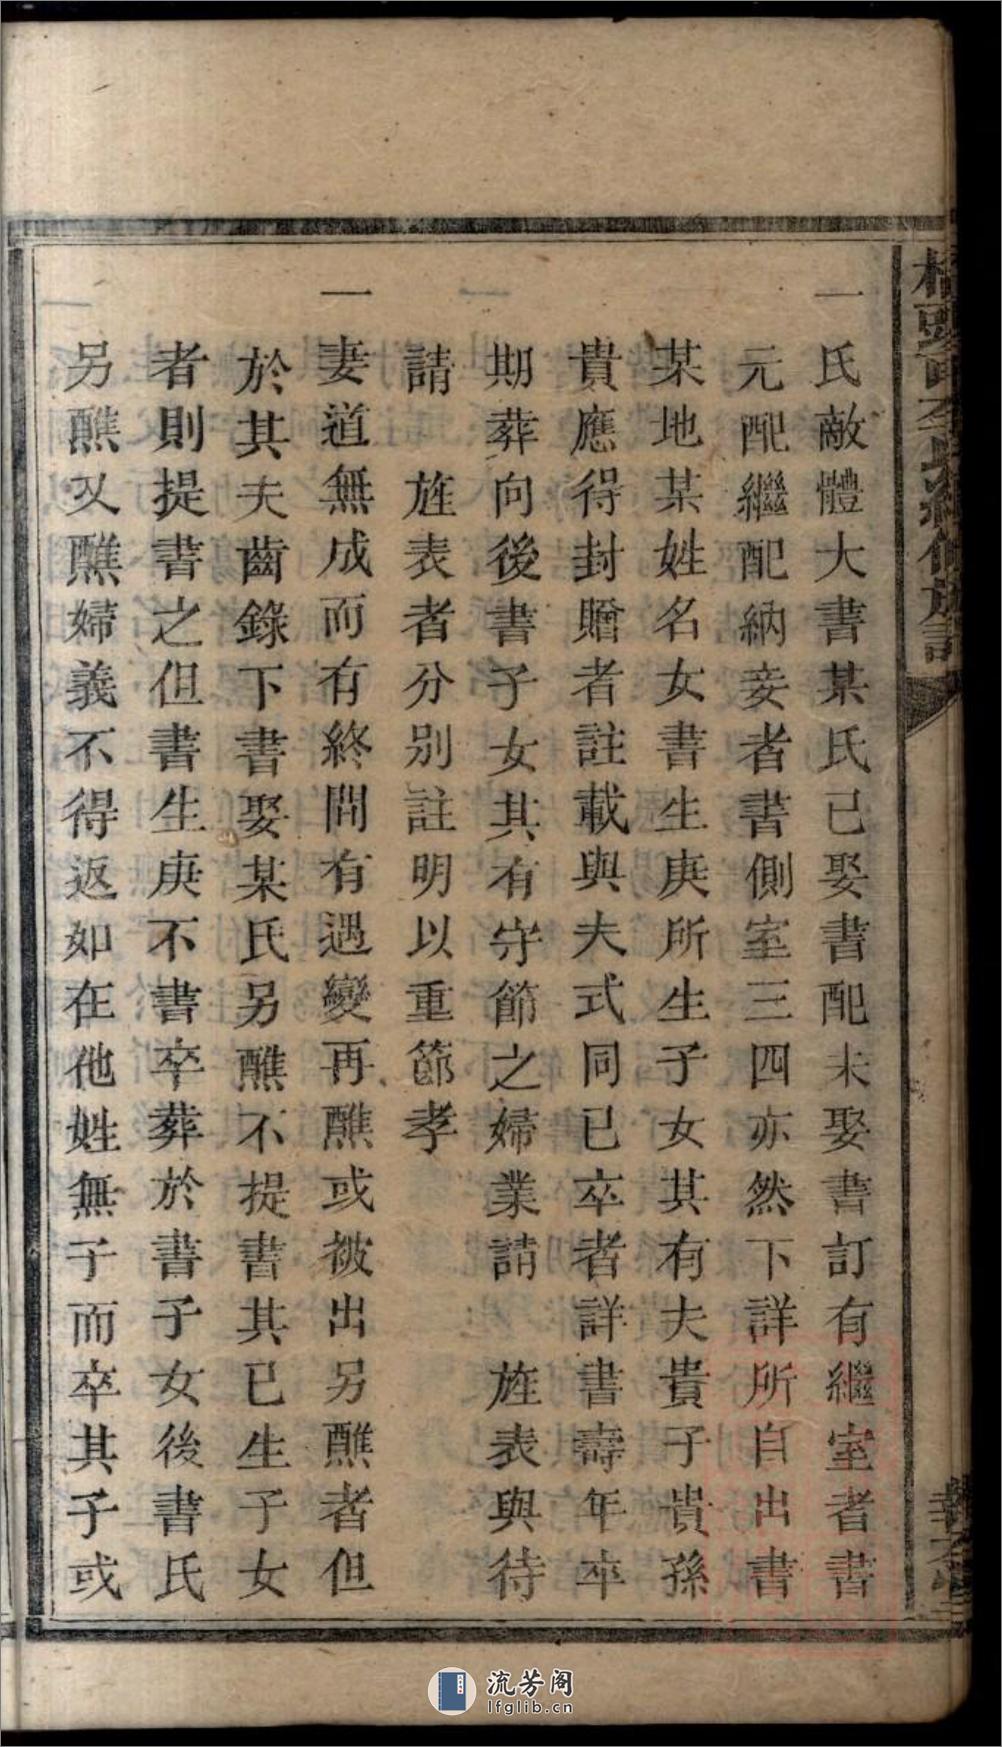 一氏敵體大書某氏已娶書配未娶書訂有繼室者書
元配繼配納妾者書側室三四亦然下詳所自出書
某地某姓名女書生庚所生子女其有夫貴子貴孫
貴應得封贈者註載與夫式同已卒者詳書壽年卒
期葬向後書子女其有守節之婦業請 旌表與待
請 旌表者分別註明以重節孝
一妻道無成而有終間有遇變再醮或被出另醮者但
於其夫齒錄下書娶某氏另醮不提書其已生子女
者則提書之但書生庚不書卒葬於書子女後書氏
另醮又醮婦義不得返如在他姓無子而卒其子或
流芳阁
lfglib.cn